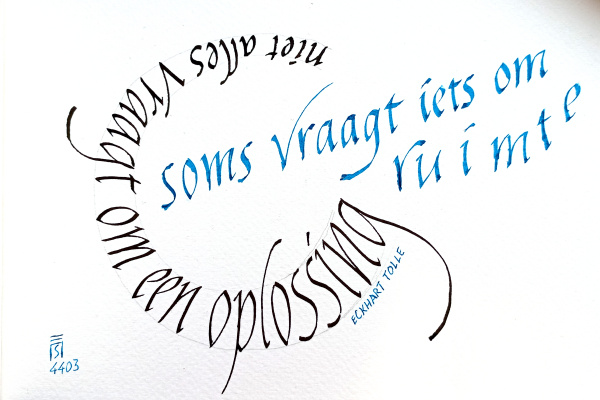 niet alles vraagt om een oplossing
soms vraagt iets om
ruimte
ECKHART TOLLE
4403